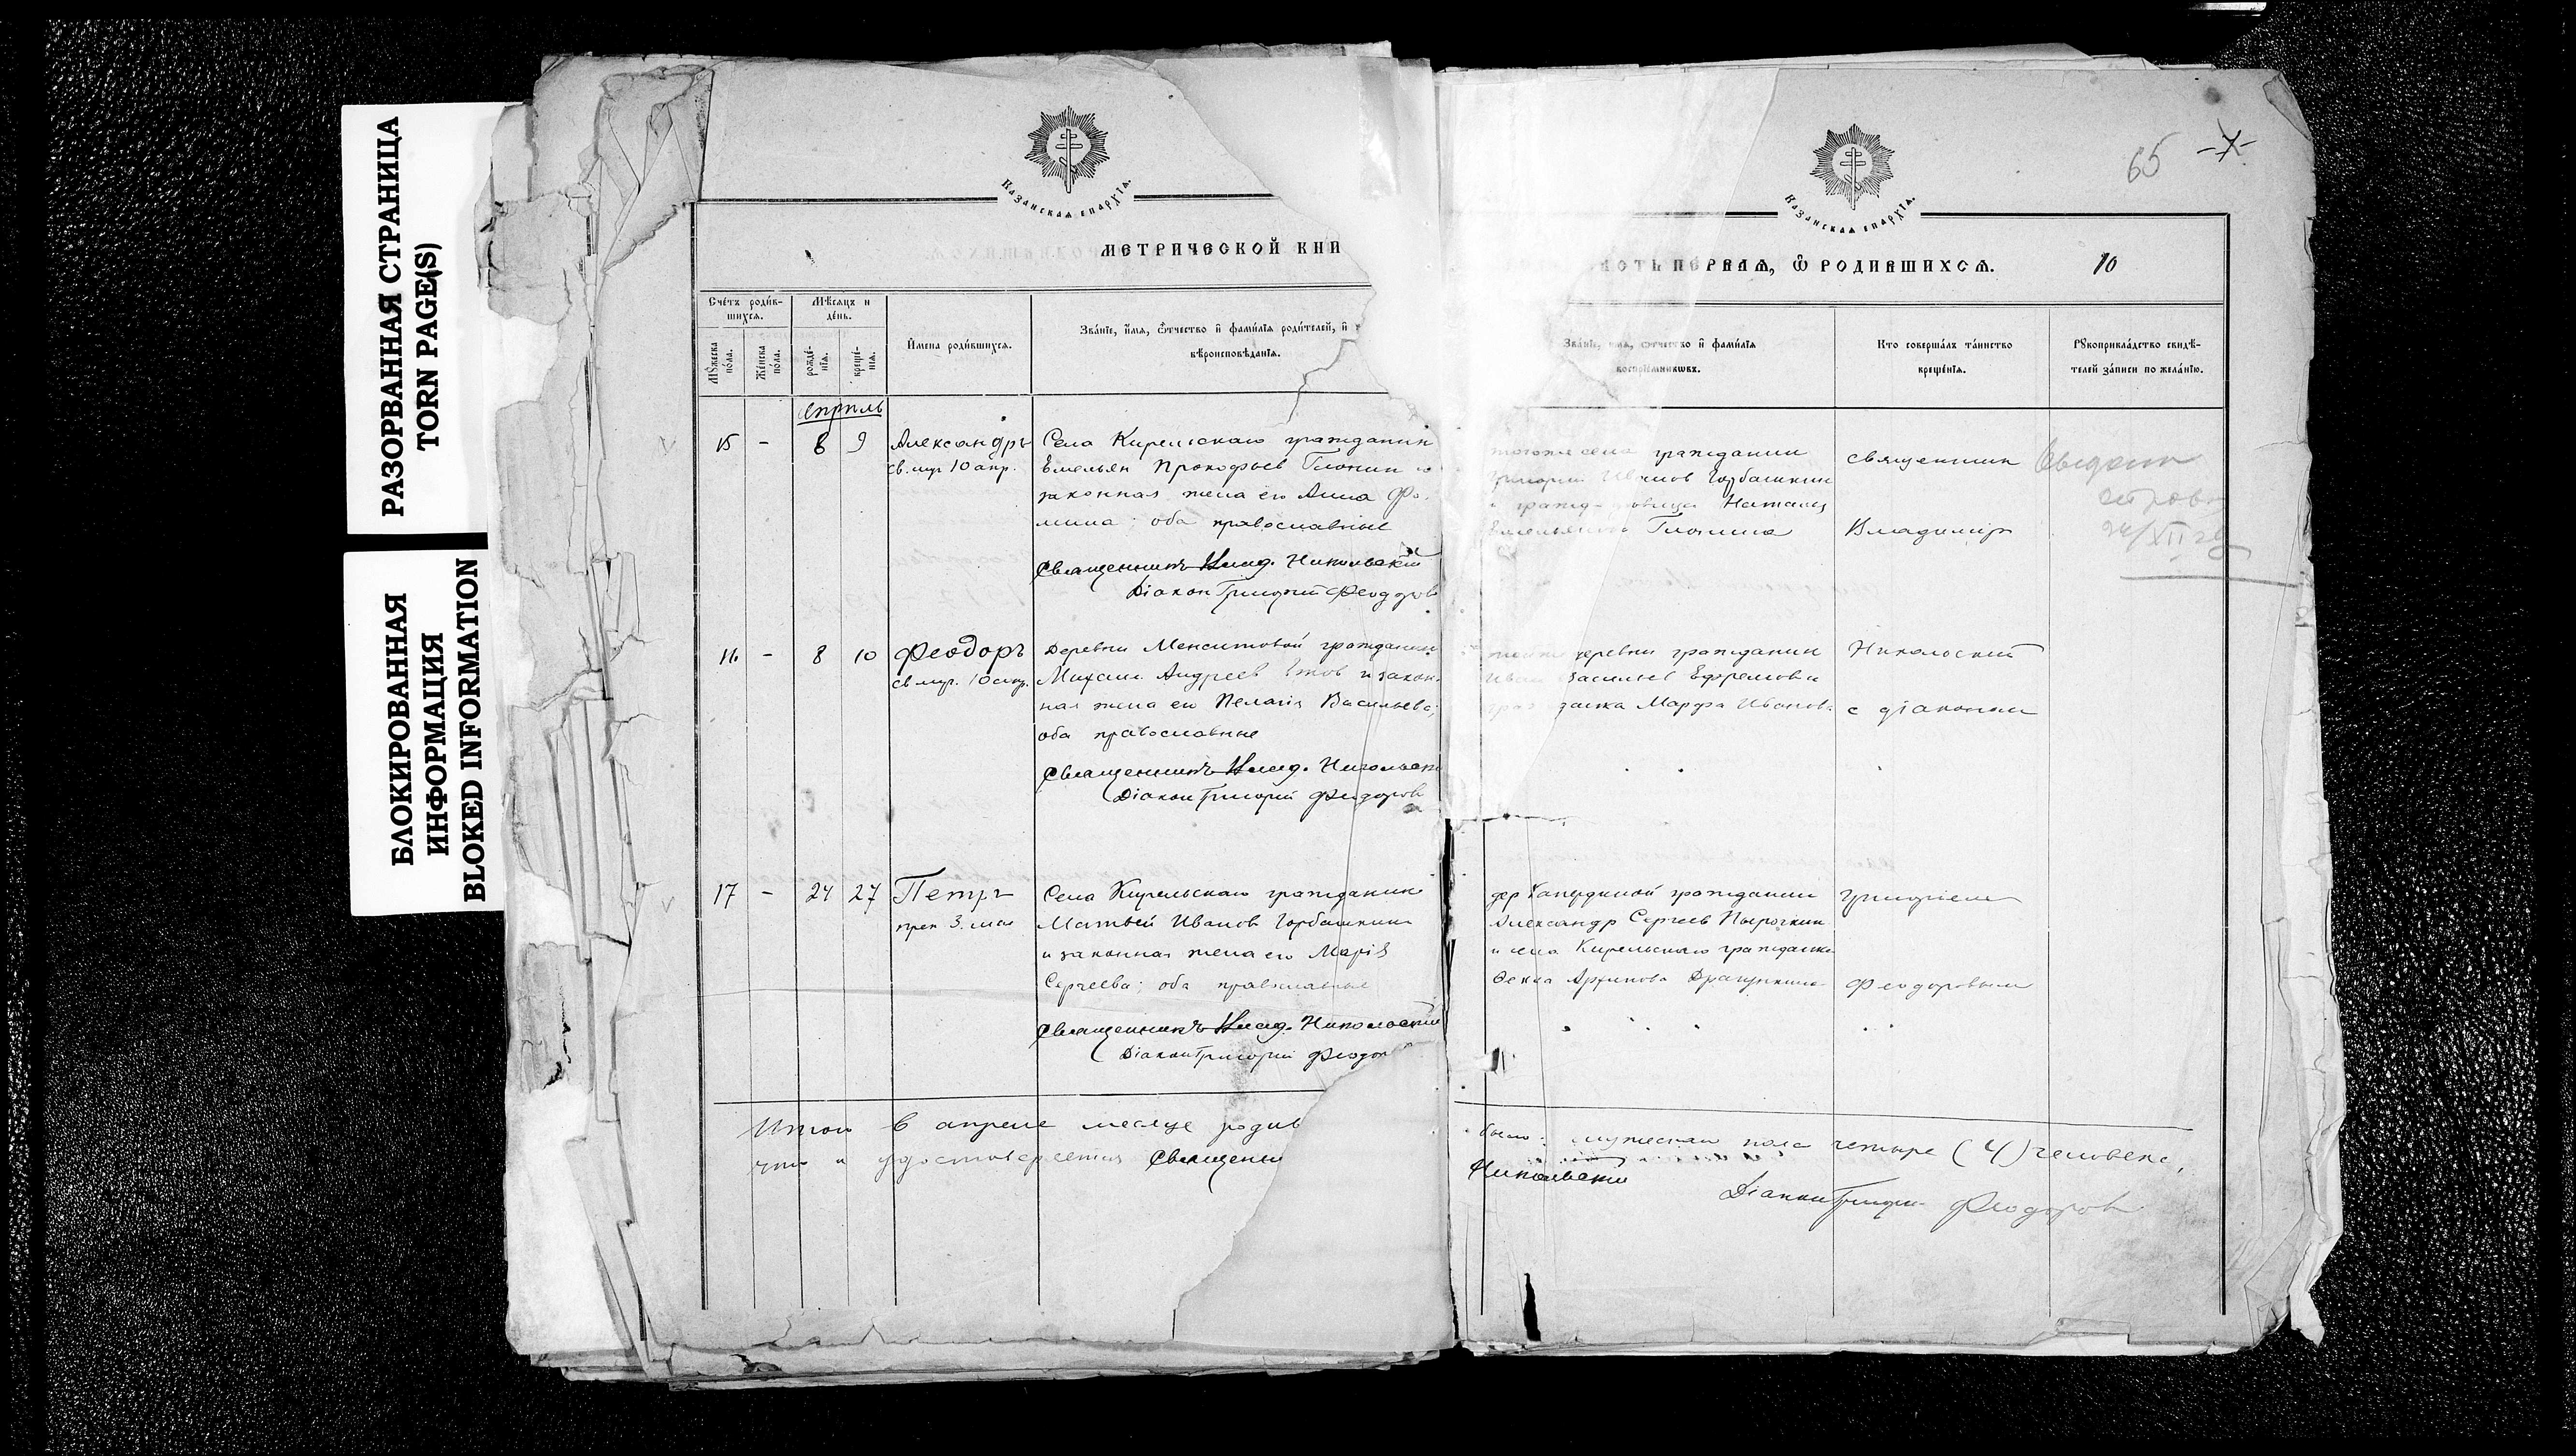 РАЗОРВАННАЯ СТРАНИЦА
TORN PAGE(S)
БЛОКИРОВАННАЯ
ИНФОРМАЦИЯ
BLOKED INFORMATION
Казанская епархїѧ.
МЕТРИЧЕСКОЙ КНИ
Счétъ родúв-
шихсѧ.
Мѣсѧцъ и
дéнь.
Мꙋжеска пóла.
Жéнска пóла.
рождé-
нїѧ.
креще́-
нїѧ.
И҆мена роди́вшихсѧ.
Зва́нїе, и҆́мѧ, ѻ҆́тчество и҆ фами́лїѧ роди́телей, и҆
вѣроисповѣ́данїѧ.
апрель
15 - 8 9 Александръ
св. муч 10 апр.
Села Кирельскаго гражданин
Емельян Прокофьев и
законная жена его Анна Фо-
мина; оба православные
Священникъ Влад. Никольскій
Діакон Григорій Феодоров
16 - 8 10 Феодоръ
св муч. 10 апр.
Деревни гражданин
Михаил Андреев и закон-
ная жена его Пелагія Васильева;
оба православные
Священникъ Влад. Никольск
Діакон Григорій Феодоров
17 - 24 27 Петръ
преп 3. мая
Села Кирельскаго гражданин
Матвей Иванов Горбашкин
и законная жена его Марія
Сергеева; оба православные
Священникъ Влад. Никольскій
Діакон Григорій Феодор
Итого в апреле месяце родив
что и удостоверяется Священни
65
Казанская епархїѧ.
ПЕРВАѦ, Ѽ РОДИВШИХСѦ.
10
Зва́нїе, и҆́мѧ, ѻ҆́тчество и҆ фами́лїѧ
воспрїе́мникѡвъ.
Кто совершáлъ тáинство
крещéнїѧ.
Рꙋкоприклáдство свидѣ́-
телей зáписи по желáнїю.
тогоже села гражданин
Григорий Иванов Горбашкин
Наталия
священник
Владимір
деревни гражданин
Иван Васильев Ефремов и
Марфа Иванов
Никольский
с діаконом
дер гражданин
Александр Сергеев Пырочкин
и села Кирельскаго гражданка
Фекла Архипова Драгункина
Григоріем
Феодоровым
было: мужескаго пола четыре (4) человека,
Никольскій
Діакон Григорій Феодоров